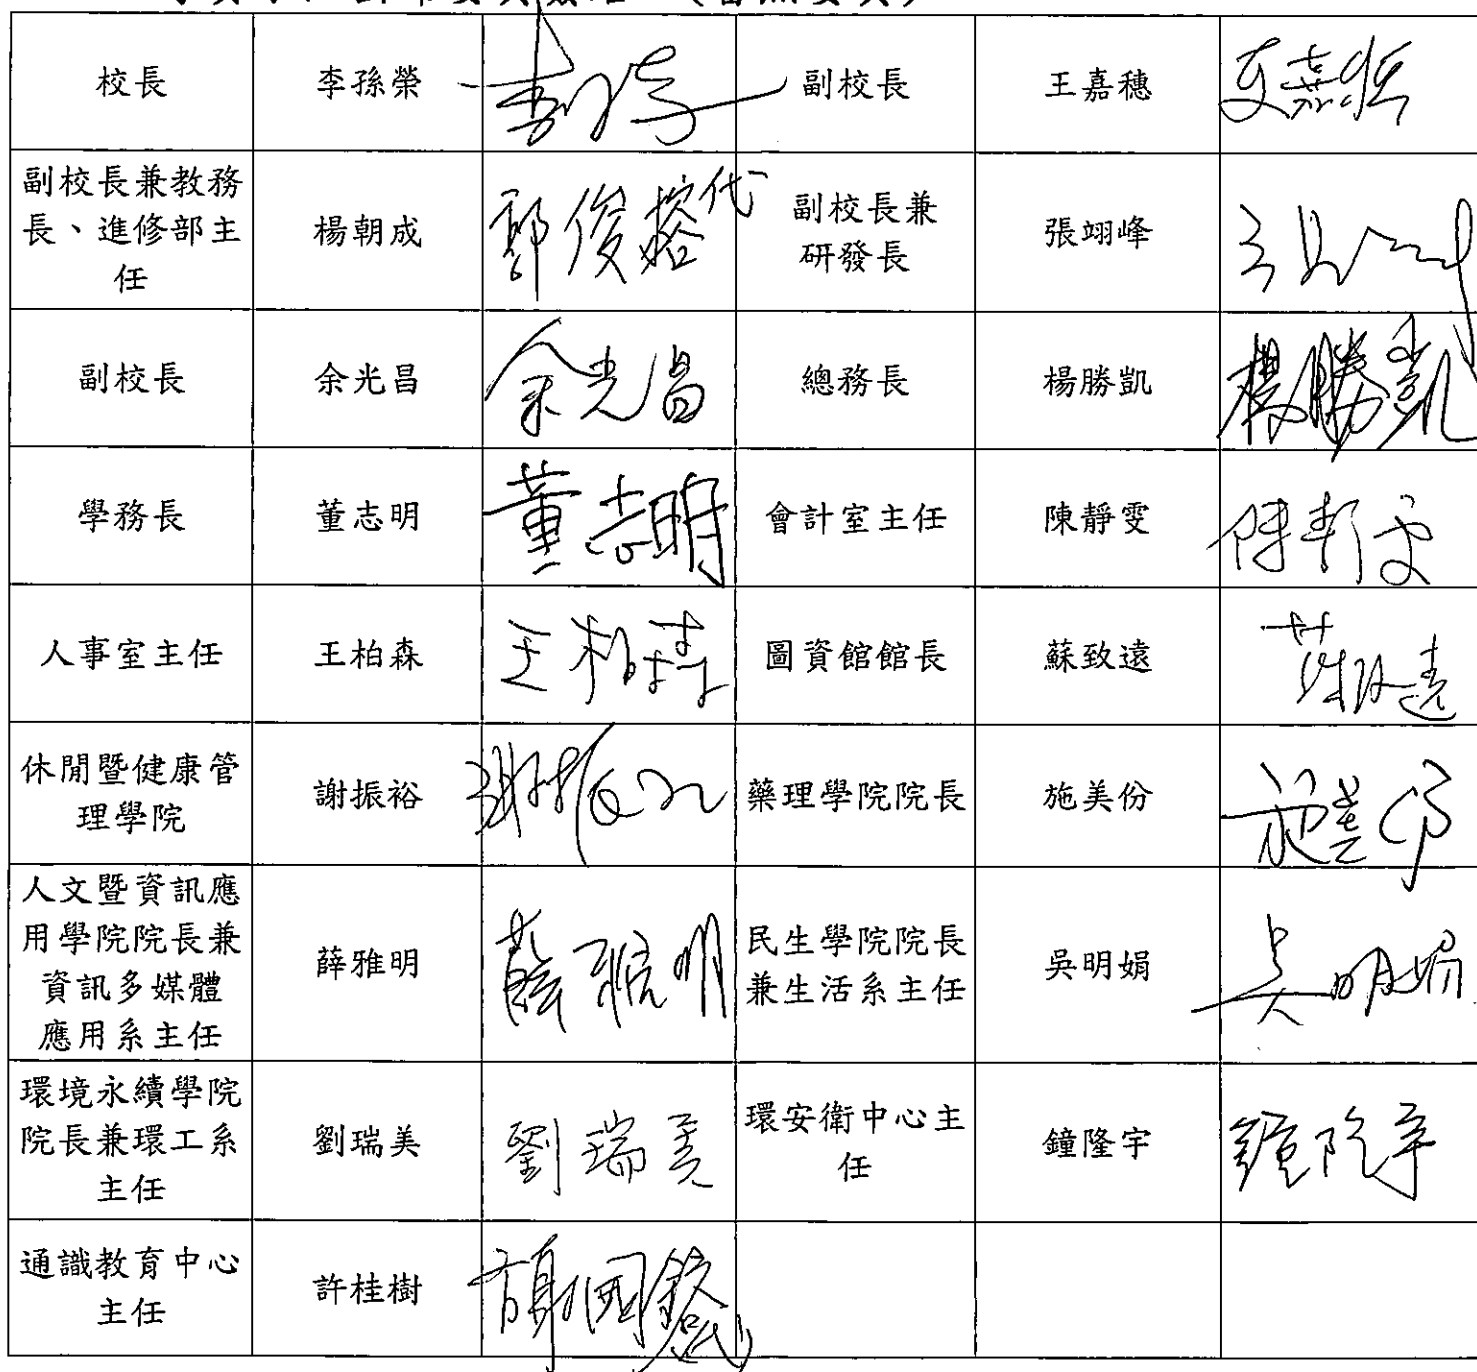 校長 李孫榮 副校長 王嘉穗 王嘉穗
副校長兼教務
長、進修部主
任
楊朝成 郭俊榕代
副校長兼
研發長
張翊峰
副校長 余光昌 余光昌 總務長 楊勝凱 楊勝凱
學務長 董志明 董志明 會計室主任 陳靜雯 陳靜雯
人事室主任 王柏森 王柏森 圖資館館長 蘇致遠 蘇致遠
休閒暨健康管
理學院
謝振裕 謝振裕 藥理學院院長 施美份 施美份
人文暨資訊應
用學院院長兼
資訊多媒體
應用系主任
薛雅明 薛雅明
民生學院院長
兼生活系主任
吳明娟 吳明娟
環境永續學院
院長兼環工系
主任
劉瑞美 劉瑞美
環安衛中心主
任
鐘隆宇 鐘隆宇
通識教育中心
主任
許桂樹